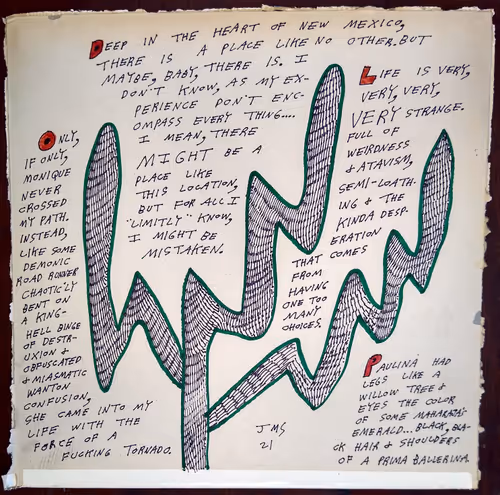 DEEP IN THE HEART OF NEW MEXICO,
THERE IS A PLACE LIKE NO OTHER. BUT
MAYBE, BABY, THERE IS. I
DON'T KNOW, AS MY EX-
PERIENCE DON'T ENC-
OMPASS EVERY THING....
I MEAN, THERE
MIGHT BE A
PLACE LIKE
THIS LOCATION,
BUT FOR ALL I
"LIMITLY" KNOW,
I MIGHT BE
MISTAKEN.
LIFE IS VERY,
VERY, VERY,
VERY STRANGE.
FULL OF
WEIRDNESS
& ATAVISM,
SEMI-LOATH-
ING & THE
KINDA DESP-
ERATION
THAT COMES
FROM
HAVING
ONE TOO
MANY
CHOICES.
ONLY,
IF ONLY,
MONIQUE
NEVER
CROSSED
MY PATH.
INSTEAD,
LIKE SOME
DEMONIC
ROAD RUNNER
CHAOTIC'LY
BENT ON
A KING-
HELL BINGE
OF DESTR-
UXION &
OBFUSCATED
& MIASMATIC
WANTON
CONFUSION,
SHE CAME INTO MY
LIFE WITH THE
FORCE OF A
FUCKING TORNADO.
PAULINA HAD
LEGS LIKE A
WILLOW TREE &
EYES THE COLOR
OF SOME MAHARAJA'S
EMERALD... BLACK, BLA-
CK HAIR & SHOULDERS
OF A PRIMA BALLERINA.
JMS
21